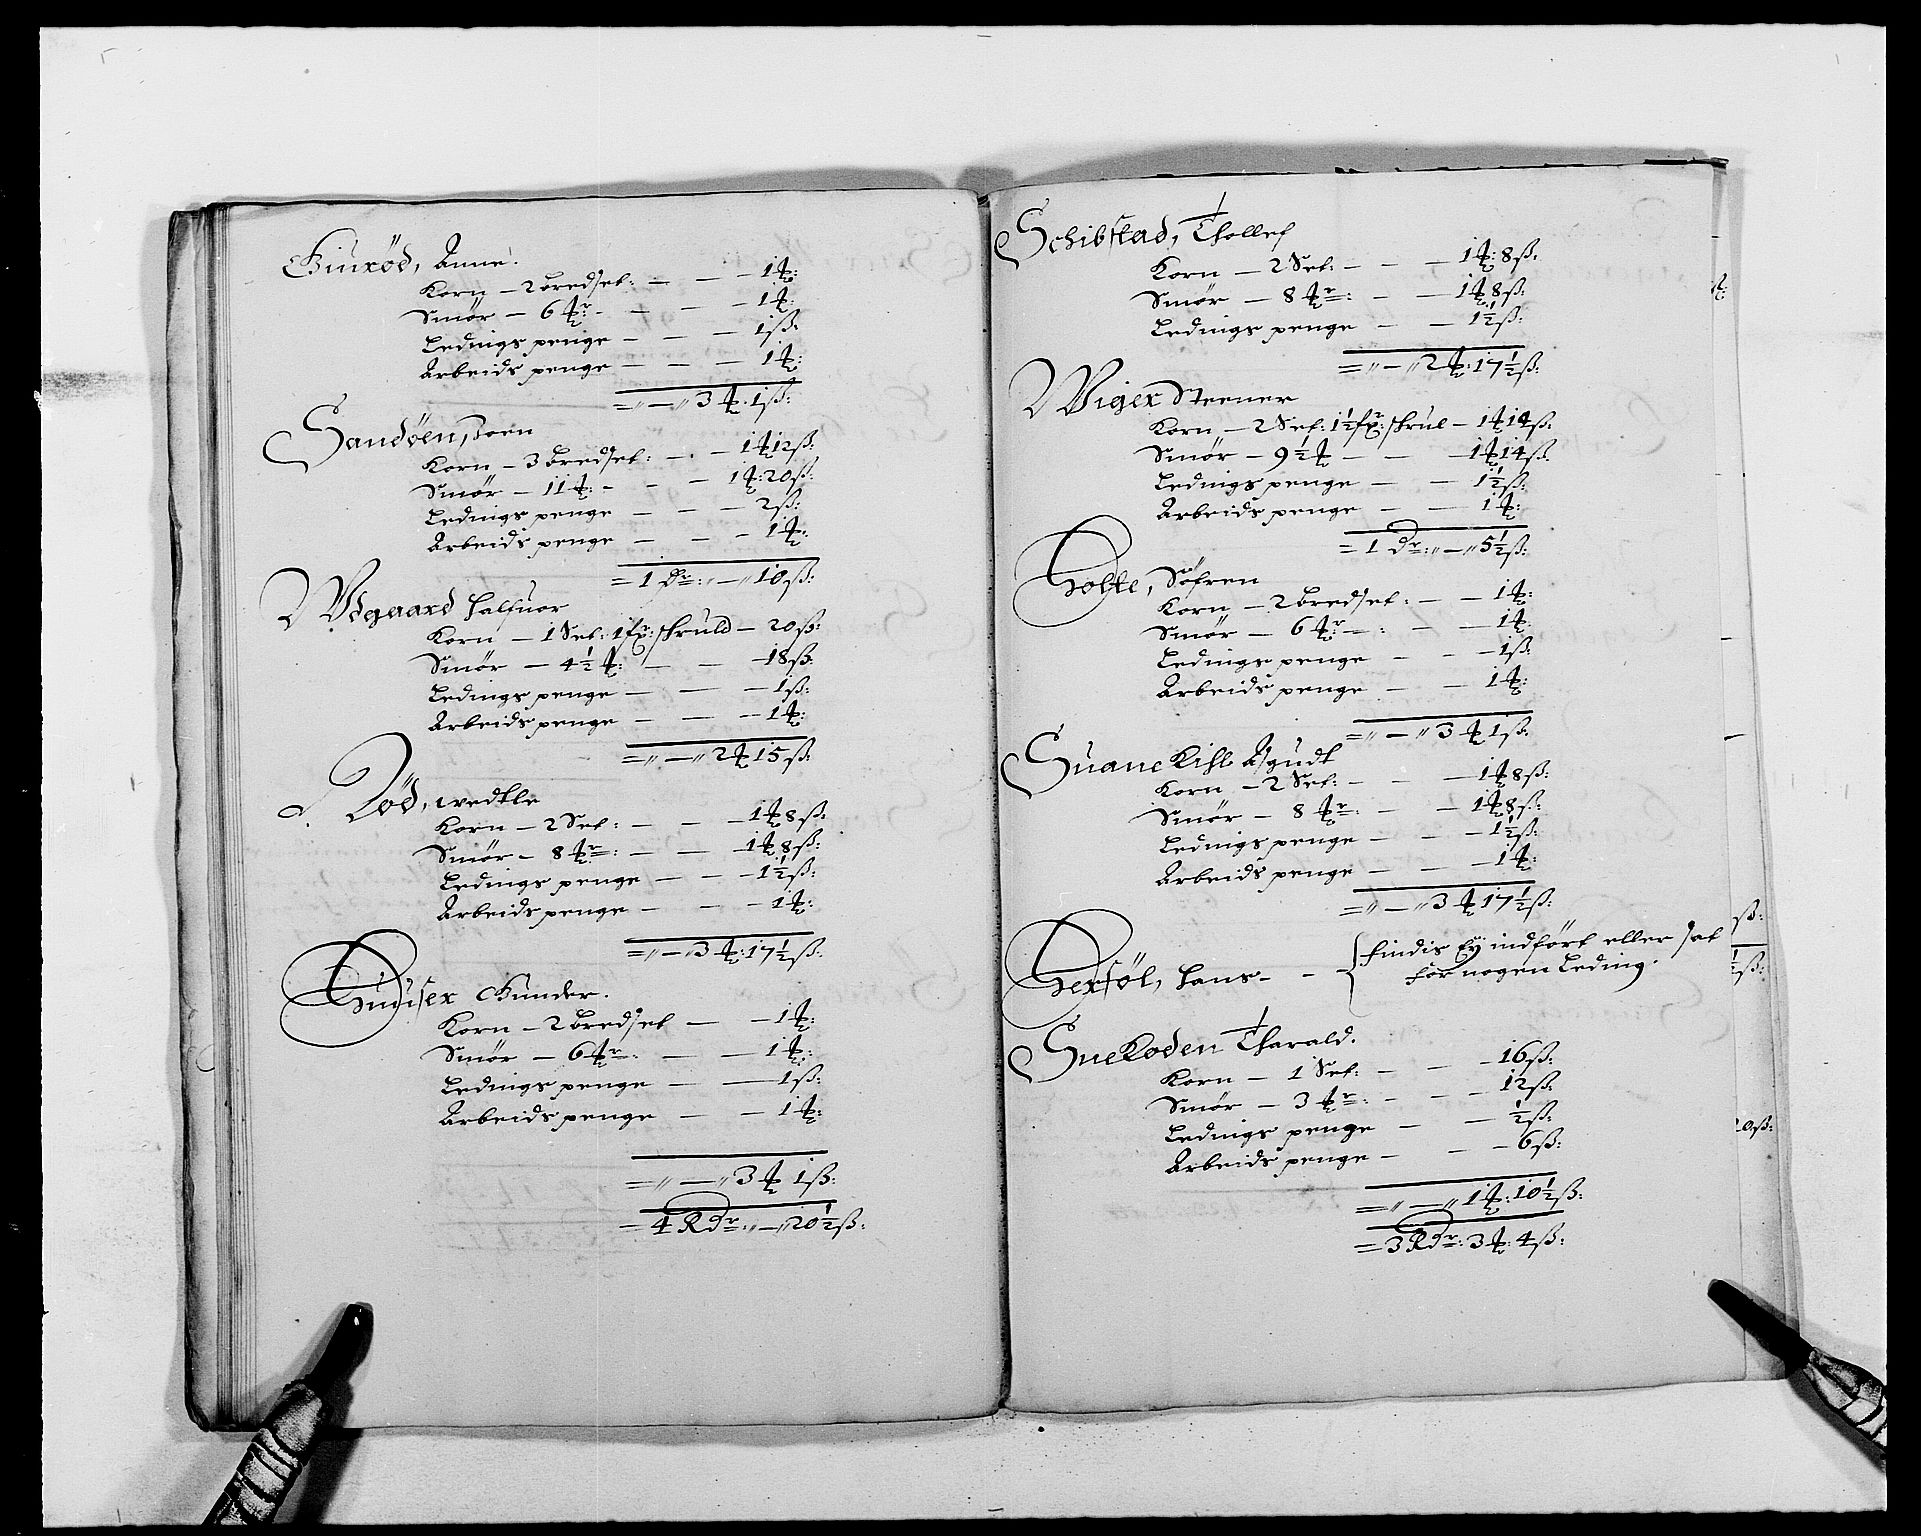 Giurød, Anne.
Korn – 2 bredset: – – – 1 ℔:
Smør – 6 ℔r: – – – 1 ℔:
Ledings penge – – – 1 ß:
Arbeids penge – – – 1 ℔:
= „ – „ 3 ℔. 1 ß:
Sandøen, Joen
Korn – 3 bredset: – – 1 ℔ 12 ß:
Smør – 11 ℔: – – – 1 ℔: 20 ß:
Ledings penge – – – 2 ß:
Arbeids penge – – – 1 ℔:
= 1 Dr: „ – „ 10 ß:
Wegaard Halfuor
Korn – 1 Set: 1 fr: skruld – 20 ß:
Smør – 4½ ℔: – – – 18 ß:
Ledings penge – – – 1 ß:
Arbeids penge – – – 1 ℔:
= „ – „ 2 ℔ 15 ß:
Rød, wedtle
Korn – 2 Set: – – – 1 ℔ 8 ß:
Smør – 8 ℔r: – – 1 ℔ 8 ß:
Ledings penge – – – 1½ ß:
Arbeids penge – – – 1 ℔:
= „ – „ 3 ℔: 17½ ß:
Gunder.
Korn – 2 bredset – – 1 ℔:
Smør – 6 ℔r: – – 1 ℔:
Ledings penge – – 1 ß:
Arbeids penge – – 1 ℔:
= „ – „ 3 ℔ 1 ß:
– 4 Rdr: „ – „ 20½ ß:
Schibstad, Thollef
Korn – 2 Set: – – – 1 ℔: 8 ß:
Smør – 8 ℔r: – – 1 ℔ 8 ß:
Ledings penge – – 1½ ß:
= „ – „ 2 ℔: 17½ ß:
Wiger Steener
Korn – 2 Set: 1½ fr: skrul – 1 ℔ 14 ß:
Smør – 9½ ℔ – – 1 ℔ 14 ß:
Ledings penge – – 1½ ß:
Arbeids penge – – 1 ℔:
= 1 Dr: „ – „ 5½ ß:
Holte, Søfren
Korn – 2 bredset: – – 1 ℔:
Smør – 6 ℔r: – – 1 ℔:
Ledings penge – – – 1 ß:
Arbeids penge – – 1 ℔:
= „ – „ 3 ℔ 1 ß:
Suane Kihl Asgudt
Korn – 2 Set: – – – 1 ℔ 8 ß:
Smør – 8 ℔r: – – 1 ℔ 8 ß:
Ledings penge – – – 1½ ß:
Arbeids penge – – – 1 ℔:
= „ – „ 3 ℔ 17½ ß:
Hans – – findis Ey indført eller sat
for nogen Leding.
Sue Koden Tharald.
Korn – 1 Set: – – – 16 ß:
Smør – 3 ℔r: – – – 12 ß:
Ledings penge – – ½ ß:
Arbeids penge – – – 6 ß:
= „ – „ 1 ℔: 10½ ß:
= 3 Rdr: 3 ℔: 4 ß: